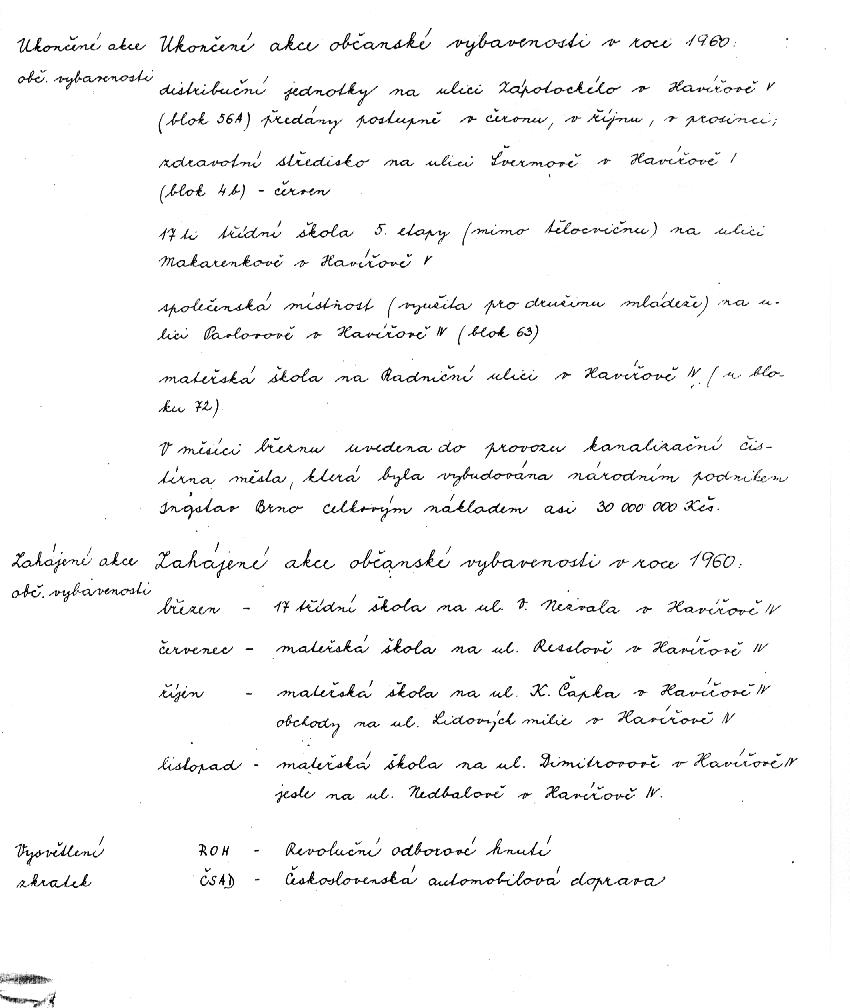 Ukončené akce Ukončené akce občanské vybavenosti v roce 1960:
obč. vybavenosti
distribuční jednotky na ulici Zápotockého v Havířově V
(blok 56A) předány postupně v červnu, v říjnu, v prosinci;
zdravotní středisko na ulici Švermově v Havířově I
(blok 4b) - červen
17 ti třídní škola 5. etapy (mimo tělocvičnu) na ulici
Makarenkově v Havířově V
společenská místnost (využita pro družinu mládeže) na u-
lici Pavlovově v Havířově IV (blok 63)
mateřská škola na Radniční ulici v Havířově IV (u blo-
ku 72)
V měsíci březnu uvedena do provozu kanalizační čis-
tírna města, která byla vybudována národním podnikem
Ingstav Brno celkovým nákladem asi 30 000 000 Kčs.
Zahájené akce Zahájené akce občanské vybavenosti v roce 1960:
obč. vybavenosti
březen - 17 třídní škola na ul. V. Nezvala v Havířově IV
červenec - mateřská škola na ul. Resslově v Havířově IV
říjen - mateřská škola na ul. K. Čapka v Havířově IV
obchody na ul. Lidových milic v Havířově IV
listopad - mateřská škola na ul. Dimitrovově v Havířově IV
jesle na ul. Nedbalově v Havířově IV.
Vysvětlení ROH - Revoluční odborové hnutí
zkratek ČSAD - Československá automobilová doprava